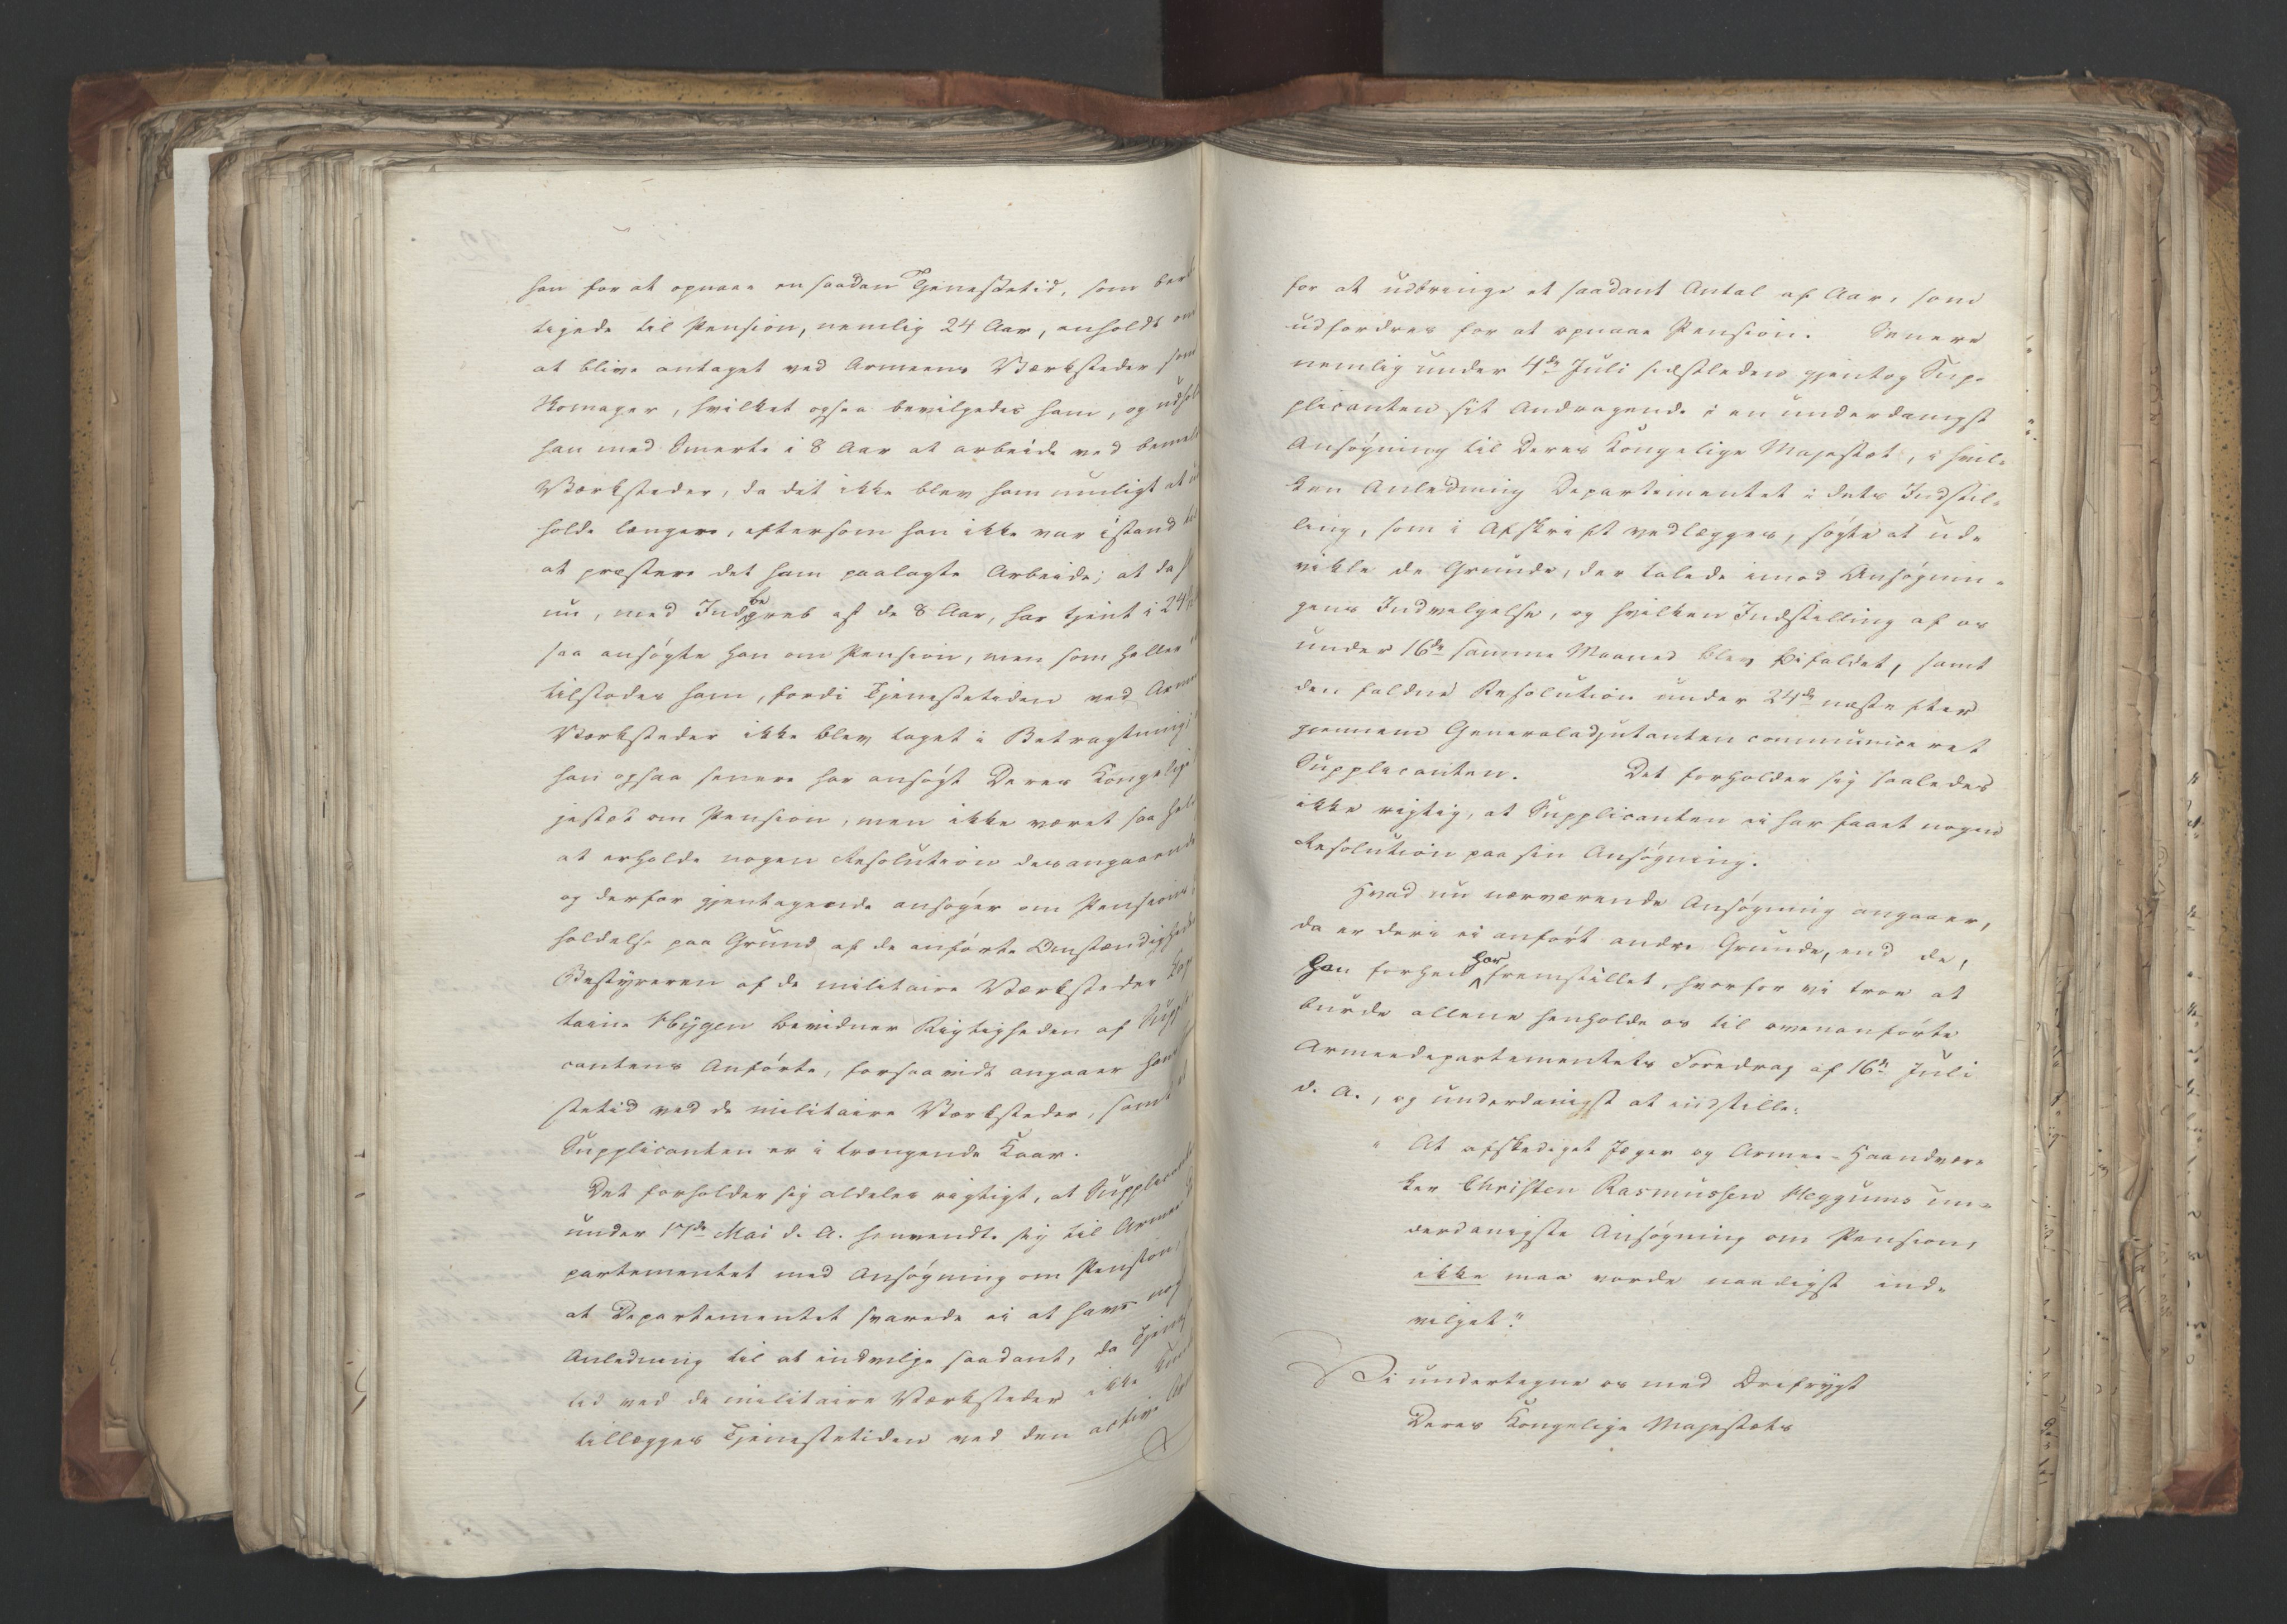 han for at opnaae en saadan Tjenestetid, som bere
tigede til Pension, nemlig 24 Aar, anholdt om
at blive antaget ved Armeens Værksteder som
Skomager, hvilket ogsaa bevilgedes ham, og udholdt
han med Smerte i 8 Aar at arbeide ved bemeldte
Værksteder, da det ikke blev ham muligt at ud
holde længere, eftersom han ikke var istand til
at præstere det ham paalagte Arbeide; at da
nu, med Indbegreb af de 8 Aar, har tjent i 24
saa ansøgte han om Pension, men som heller
tilstodes ham, fordi Tjenestetiden ved Arme
Værksteder ikke blev taget i Betragtning;
han ogsaa senere har ansøgt Deres Kongelige
jestæt om Pension, men ikke været saa held
at erholde nogen Resolution desangaaende
og derfor gjentagende ansøger om Pensions
holdelse paa Grund af de anførte Omstændigheder
Bestyreren af de militaire Værksteder Cap
taine Hbygen bevidner Rigtigheden af Suppli
cantens Anførte, forsaavidt angaaer hans
stetid ved de militaire Værksteder, samt at
Supplicanten er i trængende Kaar.
Det forholder sig aldeles rigtigt, at Supplicanten
under 17de Mai d. A. henvendte sig til Armee
partementet med Ansøgning om Pension,
at Departementet svarede ei at have nog
Anledning til at indvilge saadant, da Tjene
tid ved de militaire Værksteder ikke kunde
tillægges Tjenestetiden ved den active Ar
for at udbringe et saadant Antal af Aar, som
udfordres for at opnaae Pension. Senere
nemlig under 4de Juli sidstleden gjentog Sup-
plicanten sit Andragende i en underdanigst
Ansøgning til Deres Kongelige Majestæt, i hvil-
ken Anledning Departementet i dets Indstil-
ling, som i Afskrift vedlægges, søgte at ud-
vikle de Grunde, der talede imod Ansøgnin-
gens Indvilgelse, og hvilken Indstilling af os
under 16de samme Maaned blev bifaldet, samt
den faldne Resolution under 24de næstefter
gjennem Generaladjutanten communiceret
Supplicanten. Det forholder sig saaledes
ikke rigtig, at Supplicanten ei har faaet nogen
Resolution paa sin Ansøgning.
Hvad nu nærværende Ansøgning angaaer,
da er deri ei anført andre Grunde, end de,
han forhen har fremstillet, hvorfor vi troe at
burde allene henholde os til ovenanførte
Armeedepartementets Foredrag af 16de Juli
d. A., og underdanigst at indstille:
" At afskediget Jæger og Armee-Haandvær-
ker Christen Rasmussen Heggums un-
derdanigste Ansøgning om Pension,
ikke maa vorde naadigst ind-
vilget."
Vi undertegne os med Ærefrygt
Deres Kongelige Majestæts